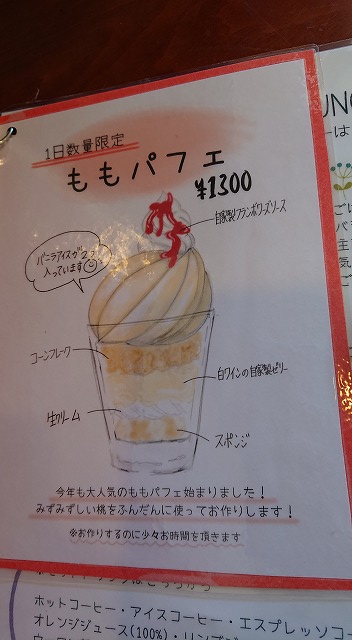 1日数量限定
ももパフェ
¥1300
自家製フランボワーズソース
バニラアイスが2つ
入っています
コーンフレーク
白ワインの自家製ゼリー
生クリーム
スポンジ
今年も大人気のももパフェ始まりました！
みずみずしい桃をふんだんに使ってお作りします！
※お作りするのに少々お時間を頂きます
ホットコーヒー・アイスコーヒー・エスプレッソ
オレンジジュース(100%)・リンゴ